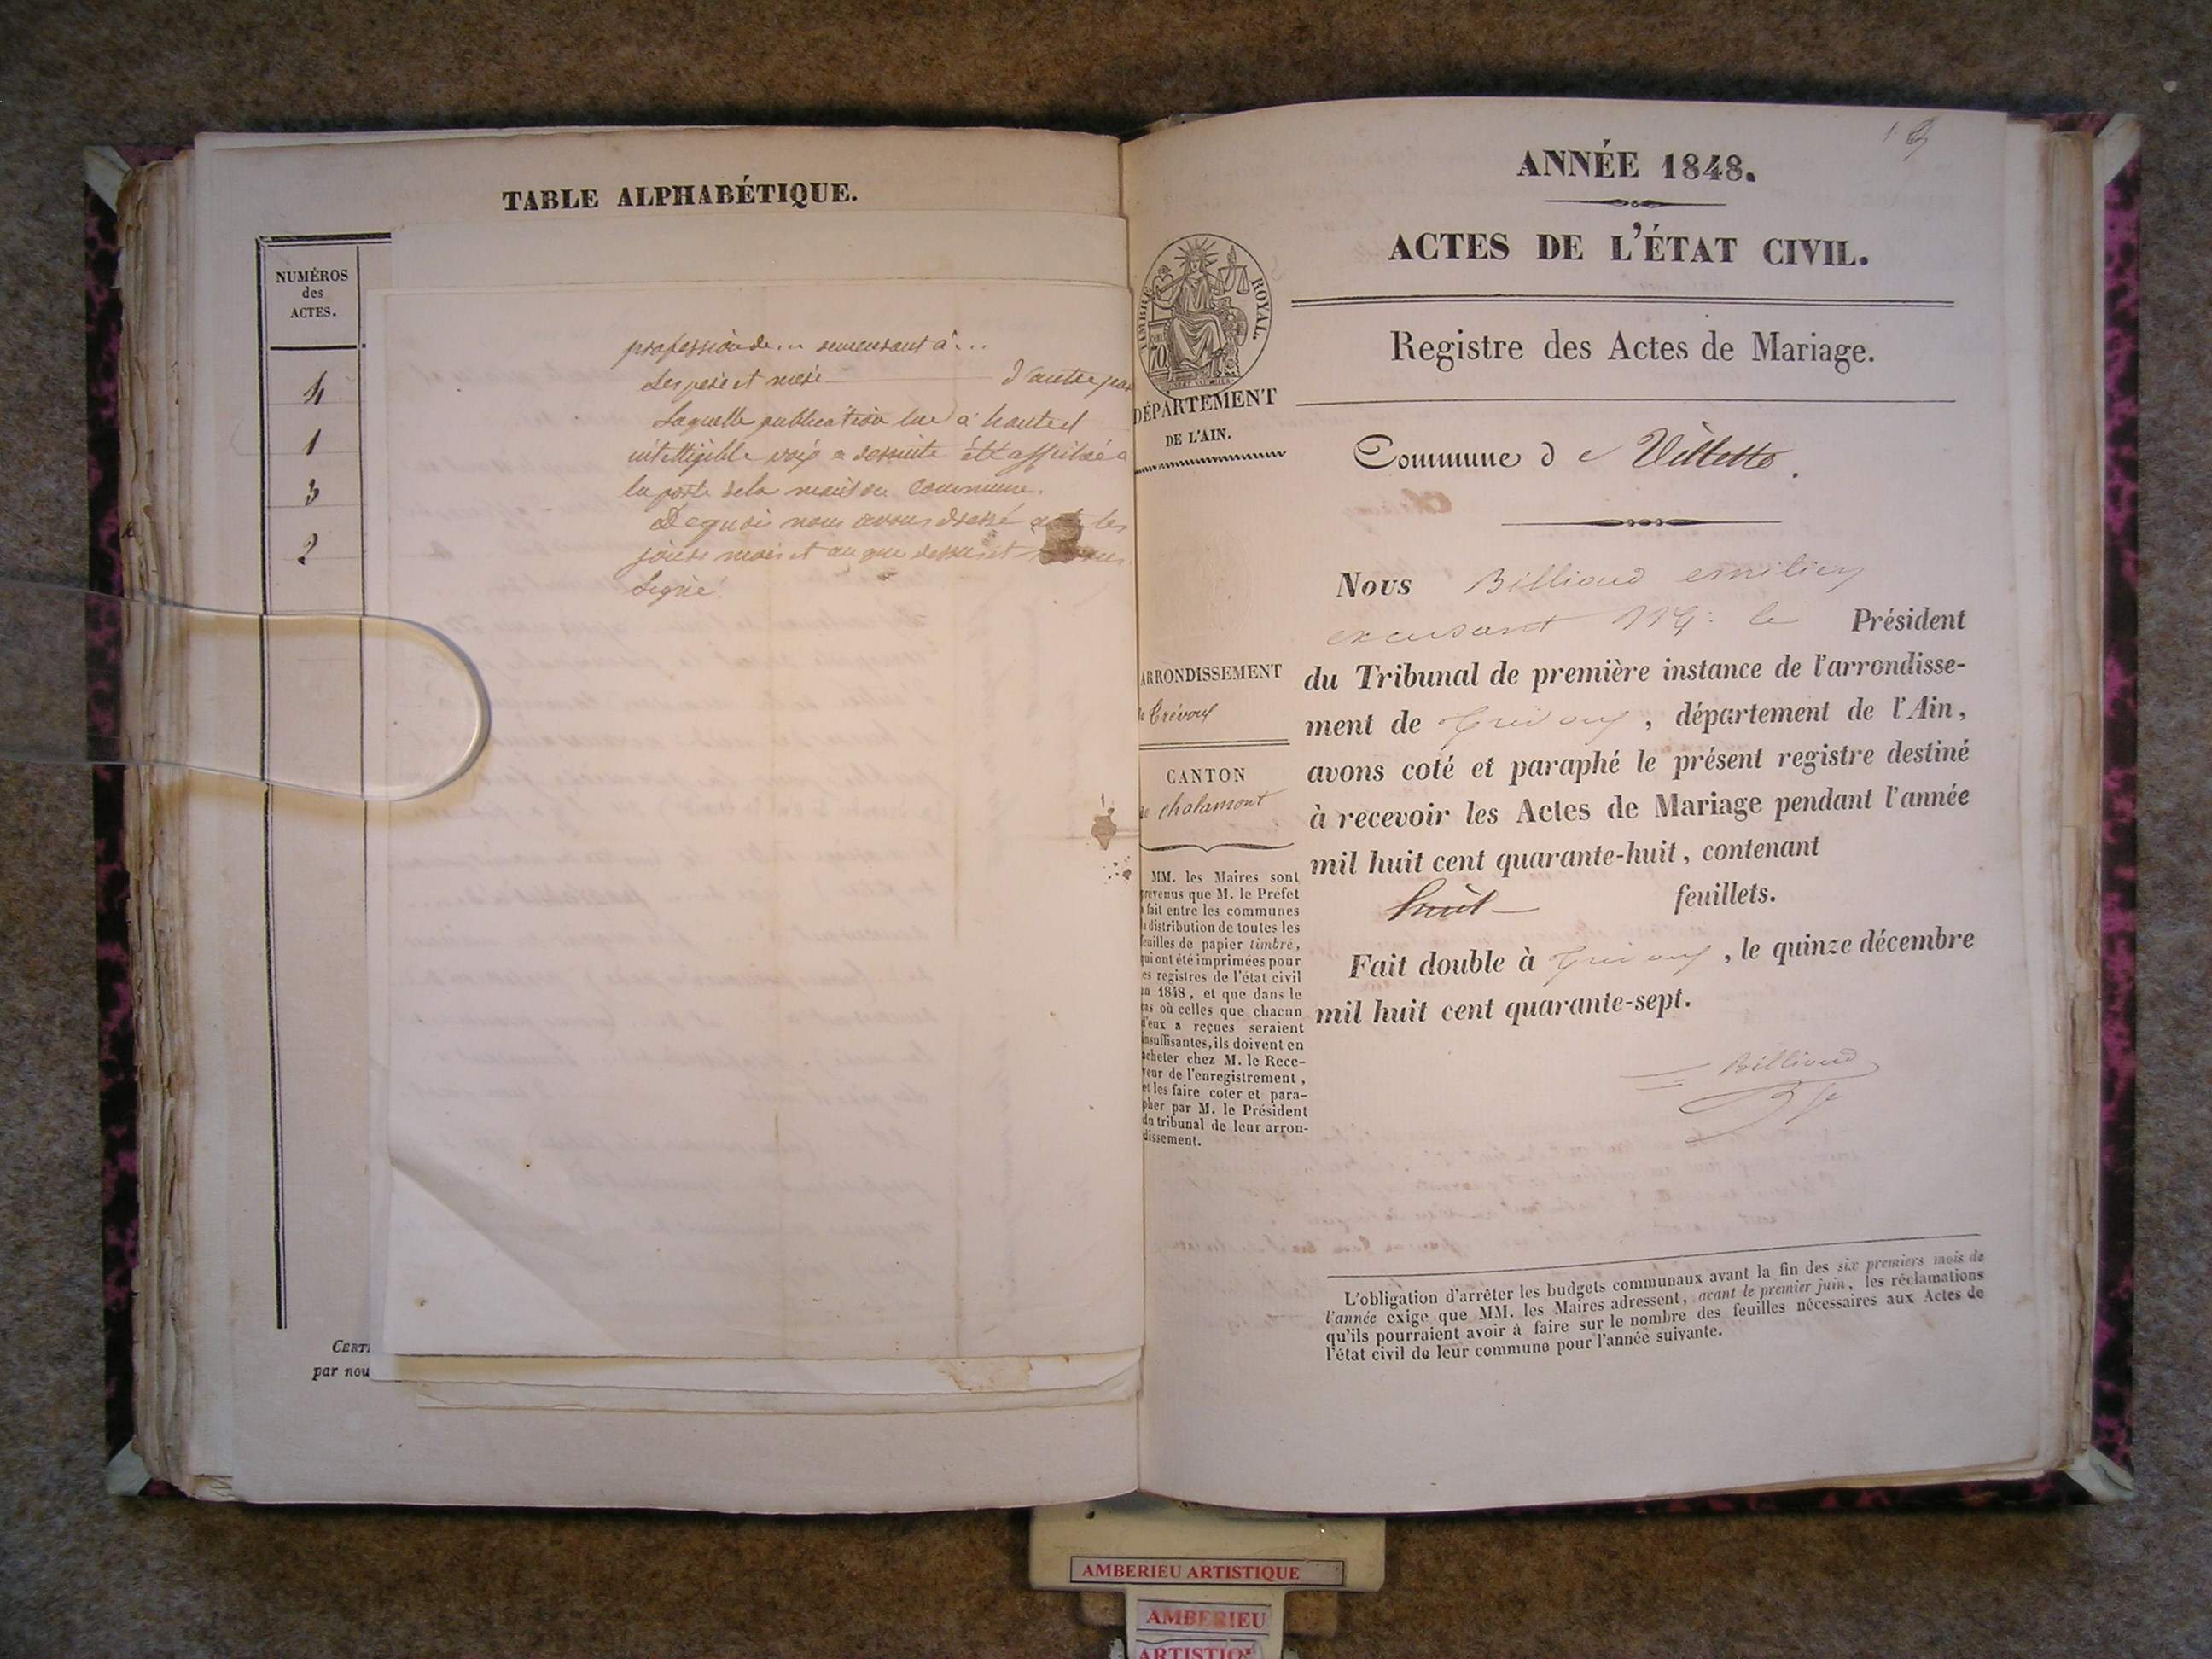 TABLE ALPHABÉTIQUE.
NUMÉROS
des
ACTES.
4
1
3
2
profession de... demeurant à...
des père et mère d'autre par
Laquelle publication lue à haute et
intelligible voix a de suite été affichée à
la porte de la maison commune.
De quoi nous avons dressé acte les
jour mois et an que dessus et
signé.
CERTI
par nou
ANNÉE 1848.
ACTES DE L'ÉTAT CIVIL.
Registre des Actes de Mariage.
TIMBRE ROYAL.
70
DÉPARTEMENT
DE L'AIN.
Commune de Villette.
ARRONDISSEMENT
de Trévoux
CANTON
de Chalamont
MM. les Maires sont
prévenus que M. le Préfet
a fait entre les communes
la distribution de toutes les
feuilles de papier timbré,
qui ont été imprimées pour
les registres de l'état civil
en 1848, et que dans le
cas où celles que chacun
d'eux a reçues seraient
insuffisantes, ils doivent en
acheter chez M. le Rece-
veur de l'enregistrement,
et les faire coter et para-
pher par M. le Président
du tribunal de leur arron-
dissement.
Nous Billioud emilien
excusant Mr. le Président
du Tribunal de première instance de l'arrondisse-
ment de Trévoux, département de l'Ain,
avons coté et paraphé le présent registre destiné
à recevoir les Actes de Mariage pendant l'année
mil huit cent quarante-huit, contenant
huit feuillets.
Fait double à Trévoux, le quinze décembre
mil huit cent quarante-sept.
Billioud
L'obligation d'arrêter les budgets communaux avant la fin des six premiers mois de
l'année exige que MM. les Maires adressent, avant le premier juin, les réclamations
qu'ils pourraient avoir à faire sur le nombre des feuilles nécessaires aux Actes de
l'état civil de leur commune pour l'année suivante.
AMBERIEU ARTISTIQUE
AMBERIEU
ARTISTIQ